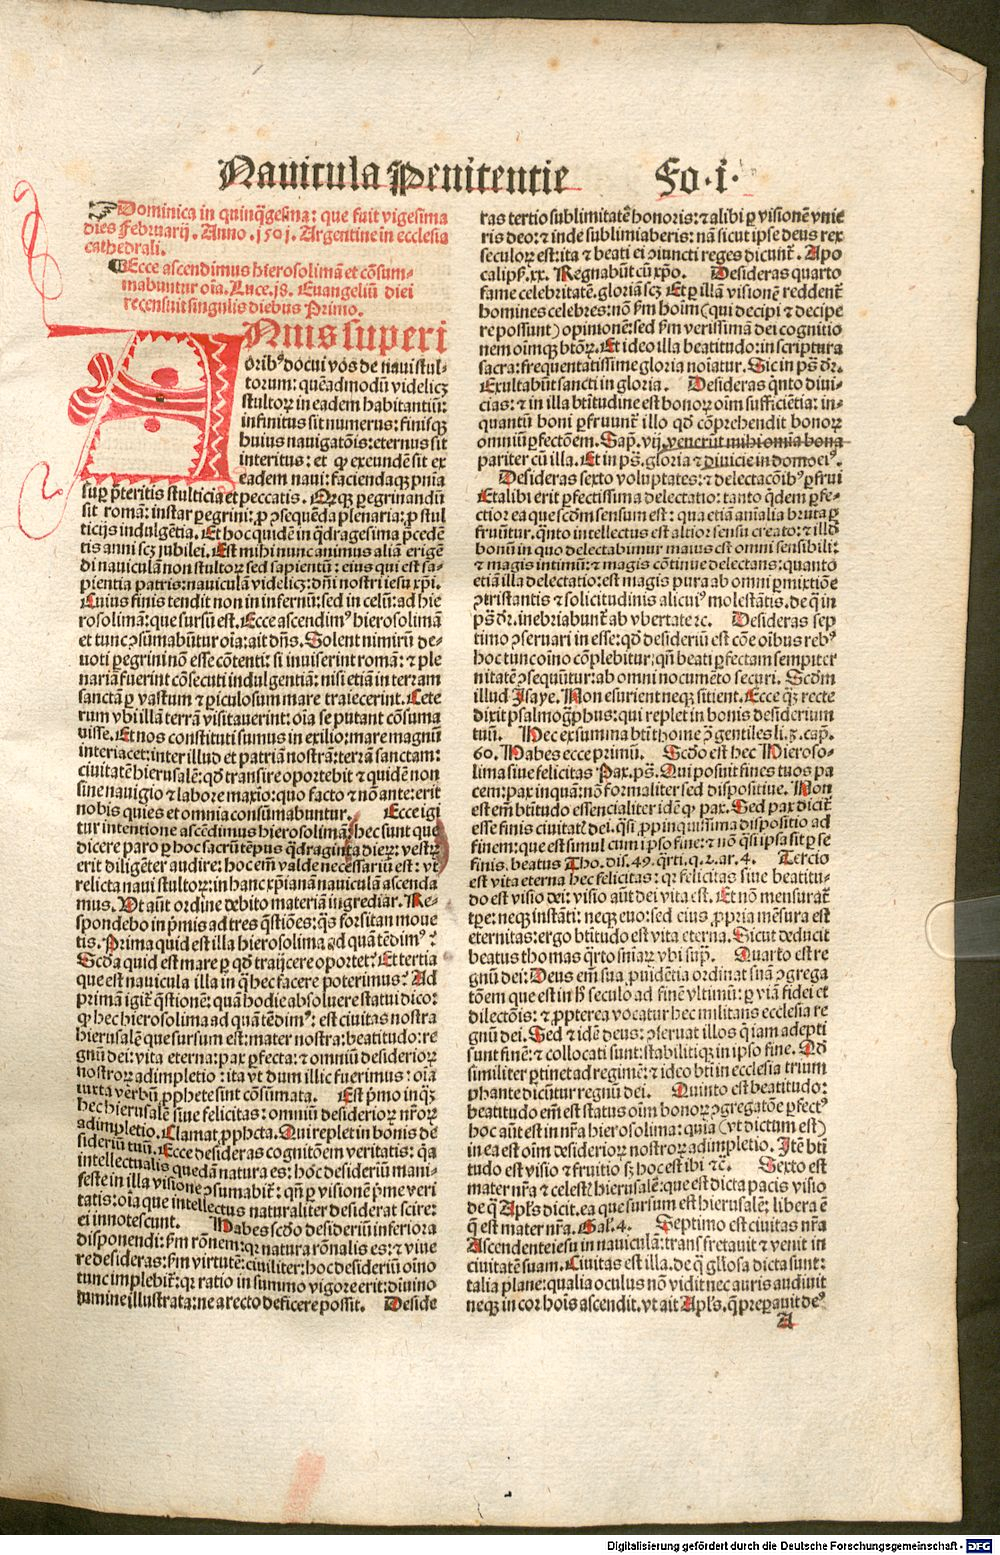 Nauicula Penitentie Fo.i.
Dominica in quinq̃gesma: que fuit vigesima
dies Februarij. Anno .1501. Argentine in ecclesia
cathedrali.
Ecce ascendimus hierosolimã et cõsum-
mabuntur oĩa. Luce .18. Euangeliũ diei
recensuit singulis diebus Primo.
ANnis superi
oribꝰ docui vos de naui stul-
torum: quẽadmodũ videlicꝫ
stultorꝝ in eadem habitantiũ:
infinitus sit numerus: finisqꝫ
huius nauigatõis: eternus sit
interitus: et qꝙ exeundẽ sit ex
eadem naui: faciendaqꝫ pñia
suꝑ p̃teritis stulticia et peccatis. Qꝙqꝫ ꝑegrinandũ
sit romã: instar ꝑegrini: ꝓ ꝯsequẽda plenaria: ꝓ stul
ticijs indulgẽtia. Et hoc quidẽ in q̃dragesima p̃cedẽ
tis anni scꝫ iubilei. Est mihi nunc animus aliã erigẽ
di nauiculã non stultorꝝ sed sapientũ: eius qui est sa-
pientia patris: nauiculã videlicꝫ: dñi nostri iesu xp̃i.
Cuius finis tendit non in infernũ: sed in celũ: ad hie
rosolimã: que sursũ est. Ecce ascendimꝰ hierosolimã
et tunc ꝯsũmabũtur oĩa: ait dñs. Solent nimirũ de-
uoti ꝑegrini nõ esse cõtenti: si inuiserint romã: ⁊ ple
nariã fuerint cõsecuti indulgentiã: nisi etiã in terram
sanctã ꝑ vastum ⁊ ꝑiculosum mare traiecerint. Cete
rum vbi illã terrã visitauerint: oĩa se putant cõsuma
uisse. Et nos constituti sumus in exilio: mare magnũ
interiacet: inter illud et patriã nostrã: terrã sanctam:
ciuitatẽ hierusalẽ: qd̃ transire oportebit ⁊ quidẽ non
sine nauigio ⁊ labore maxĩo: quo facto ⁊ nõ ante: erit
nobis quies et omnia consũmabuntur. Ecce igi
tur intentione ascẽdimus hierosolimã: hec sunt que
dicere paro ꝑ hoc sacrũ tẽpus q̃draginta dierꝝ: vestrꝝ
erit diligẽter audire: hoc em̃ valde necessariũ est: vt
relicta naui stultorꝝ: in hanc xp̃ianã nauiculã ascenda
mus. Vt aũt ordine debito materiã ingrediar. Re-
spondebo in p̃mis ad tres q̃stiões: q̃s forsitan moue
tis. Prima quid est illa hierosolima ad quã tẽdimꝰ?
Scd̃a quid est mare ꝑ qd̃ traijcere oportet? Et tertia
que est nauicula illa in q̃ hec facere poterimus? Ad
primam igit̃ q̃stionem: quam hodie absoluere statui dico:
qꝙ hec hierosolima ad quã tẽdimꝰ: est ciuitas nostra
hierusalẽ que sursum est: mater nostra: beatitudo: re
gnũ dei: vita eterna: pax ꝑfecta: ⁊ omniũ desideriorꝝ
nostrorꝝ adimpletio: ita vt dum illic fuerimus: oĩa
iuxta verbũ ꝓphete sint cõsũmata. Est p̃mo inqꝫ
hec hierusalẽ siue felicitas: omniũ desideriorꝝ nr̃orꝝ
adimpletio. Clamat ꝓpheta. Qui replet in bonis de
sideriũ tuũ. Ecce desideras cognitõem veritatis: q̃a
intellectualis quedã natura es: hoc desideriũ mani-
feste in illa visione ꝯsumabit̃: qñ ꝑ visionẽ p̃me veri
tatis: oĩa que intellectus naturaliter desiderat scire:
ei innotescunt. Habes scd̃o desideriũ inferiora
disponendi: s̃m rõnem: qꝛ natura rõnalis es: ⁊ viue
re desideras: s̃m virtutẽ: ciuiliter: hoc desideriũ oĩno
tunc implebit̃: qꝛ ratio in summo vigore erit: diuino
lumine illustrata: ne a recto deficere possit. Deside
ras tertio sublimitatẽ honoris: ⁊ alibi ꝑ visionẽ vnie
ris deo: ⁊ inde sublimiaberis: nã sicut ipse deus rex
seculorꝝ est: ita ⁊ beati ei ꝯiuncti reges dicunt̃. Apo
calipš. xx. Regnabũt cũ xp̃o. Desideras quarto
fame celebritatẽ. gloriã scꝫ Et ꝑ illã visionẽ reddent̃
homines celebres: nõ s̃m hoĩm (qui decipi ⁊ decipe
re possunt) opinionẽ: sed s̃m verissimã dei cognitio
nem oĩmqꝫ btõrꝝ. Et ideo illa beatitudo: in scriptura
sacra: frequentatissime gloria noĩatur. Sic in pš dr̃.
Exultabũt sancti in gloria. Desideras q̃nto diui-
cias: ⁊ in illa btĩtudine est bonorꝝ oĩm sufficiẽtia: in-
quantũ boni ꝑfruunt̃ illo qd̃ cõprehendit bonorꝝ
omniũ ꝑfectõem. Sap. vij. venerũt mihi omia bona
pariter cũ illa. Et in pš. gloria ⁊ diuicie in domo eiꝰ.
Desideras sexto voluptates: ⁊ delectacõibꝰ ꝑfrui
Et alibi erit ꝑfectissima delectatio: tanto q̃dem ꝑfe-
ctior ea que scd̃m sensum est: qua etiã aĩalia bruta ꝑ
fruũtur. q̃nto intellectus est altior sensu creato: ⁊ illd̃
bonũ in quo delectabimur maius est omni sensibili:
⁊ magis intimũ: ⁊ magis cõtinue delectans: quanto
etiã illa delectatio: est magis pura ab omni ꝑmixtiõe
ꝯtristantis ⁊ solicitudinis alicuiꝰ molestãtis. de q̃ in
pš dr̃. inebriabunt̃ ab vbertate ⁊c. Desideras sep
timo ꝯseruari in esse: qd̃ desideriũ est cõe oĩbus rebꝰ
hoc tunc oĩno cõplebitur: qñ beati ꝑfectam sempiter
nitatẽ ꝯsequũtur: ab omni nocumẽto securi. Scd̃m
illud Isaye. Non esurient neqꝫ sitient. Ecce qꝫ recte
dixit psalmog̃phus: qui replet in bonis desiderium
tuũ. Hec ex summa btĩ thome ↄ̃ gentiles li. 3. cap̃.
60. Habes ecce primũ. Scd̃o est hec Hieroso-
lima siue felicitas Pax. pš. Qui posuit fines tuos pa
cem: pax inquã: nõ formaliter sed dispositiue. Non
est em̃ btĩtudo essencialiter idẽ qꝙ pax. Sed pax dicit̃
esse finis ciuitat̃ dei. q̃si ꝓpinquissima dispositio ad
finem: que est simul cum ipso fine: ⁊ nõ q̃si ipsa sit ꝑ se
finis. beatus Tho. dis. 49. q̃rti. q. 2. ar. 4. Tercio
est vita eterna hec felicitas: qꝛ felicitas siue beatitu-
do est visio dei: visio aũt dei vita est. Et nõ mensurat̃
tꝑe: neqꝫ instãti: neqꝫ euo: sed eius ꝓpria mẽsura est
eternitas: ergo btĩtudo est vita eterna. Sicut deducit
beatus thomas q̃rto sniarꝝ vbi suꝑ. Quarto est re
gnũ dei: Deus em̃ sua ꝓuidẽtia ordinat suã ꝯgrega
tõem que est in h̃ seculo ad finẽ vltimũ: ꝑ viã fidei et
dilectõis: ⁊ ꝓpterea vocatur hec militans ecclesia re
gnũ dei. Sed ⁊ idẽ deus: ꝯseruat illos q̃ iam adepti
sunt finẽ: ⁊ collocati sunt: stabilitiqꝫ in ipso fine. Qd̃
similiter ꝑtinet ad regimẽ: ⁊ ideo btĩ in ecclesia trium
phante dicũtur regnũ dei. Quinto est beatitudo:
beatitudo em̃ est status oĩm bonorꝝ ꝯgregatõe ꝑfectꝰ
hoc aũt est in nr̃a hierosolima: quia (vt dictum est)
in ea est oĩm desideriorꝝ nostrorꝝ adimpletio. Itẽ btĩ
tudo est visio ⁊ fruitio sꝫ hoc est ibi ⁊c̃. Sexto est
mater nr̃a ⁊ celest̃ hierusalẽ: que est dicta pacis visio
de q̃ Apl̃s dicit. ea que sursum est hierusalẽ: libera ẽ
q̃ est mater nr̃a. Gal̃. 4. Septimo est ciuitas nr̃a
Ascendente iesu in nauiculã: transfretauit ⁊ venit in
ciuitatẽ suam. Ciuitas est illa. de q̃ gl̃iosa dicta sunt:
talia plane: qualia oculus nõ vidit nec auris audiuit
neqꝫ in cor hoĩs ascendit. vt ait Apl̃s. q̃ preparauit deꝰ
A
Digitalisierung gefördert durch die Deutsche Forschungsgemeinschaft - DFG